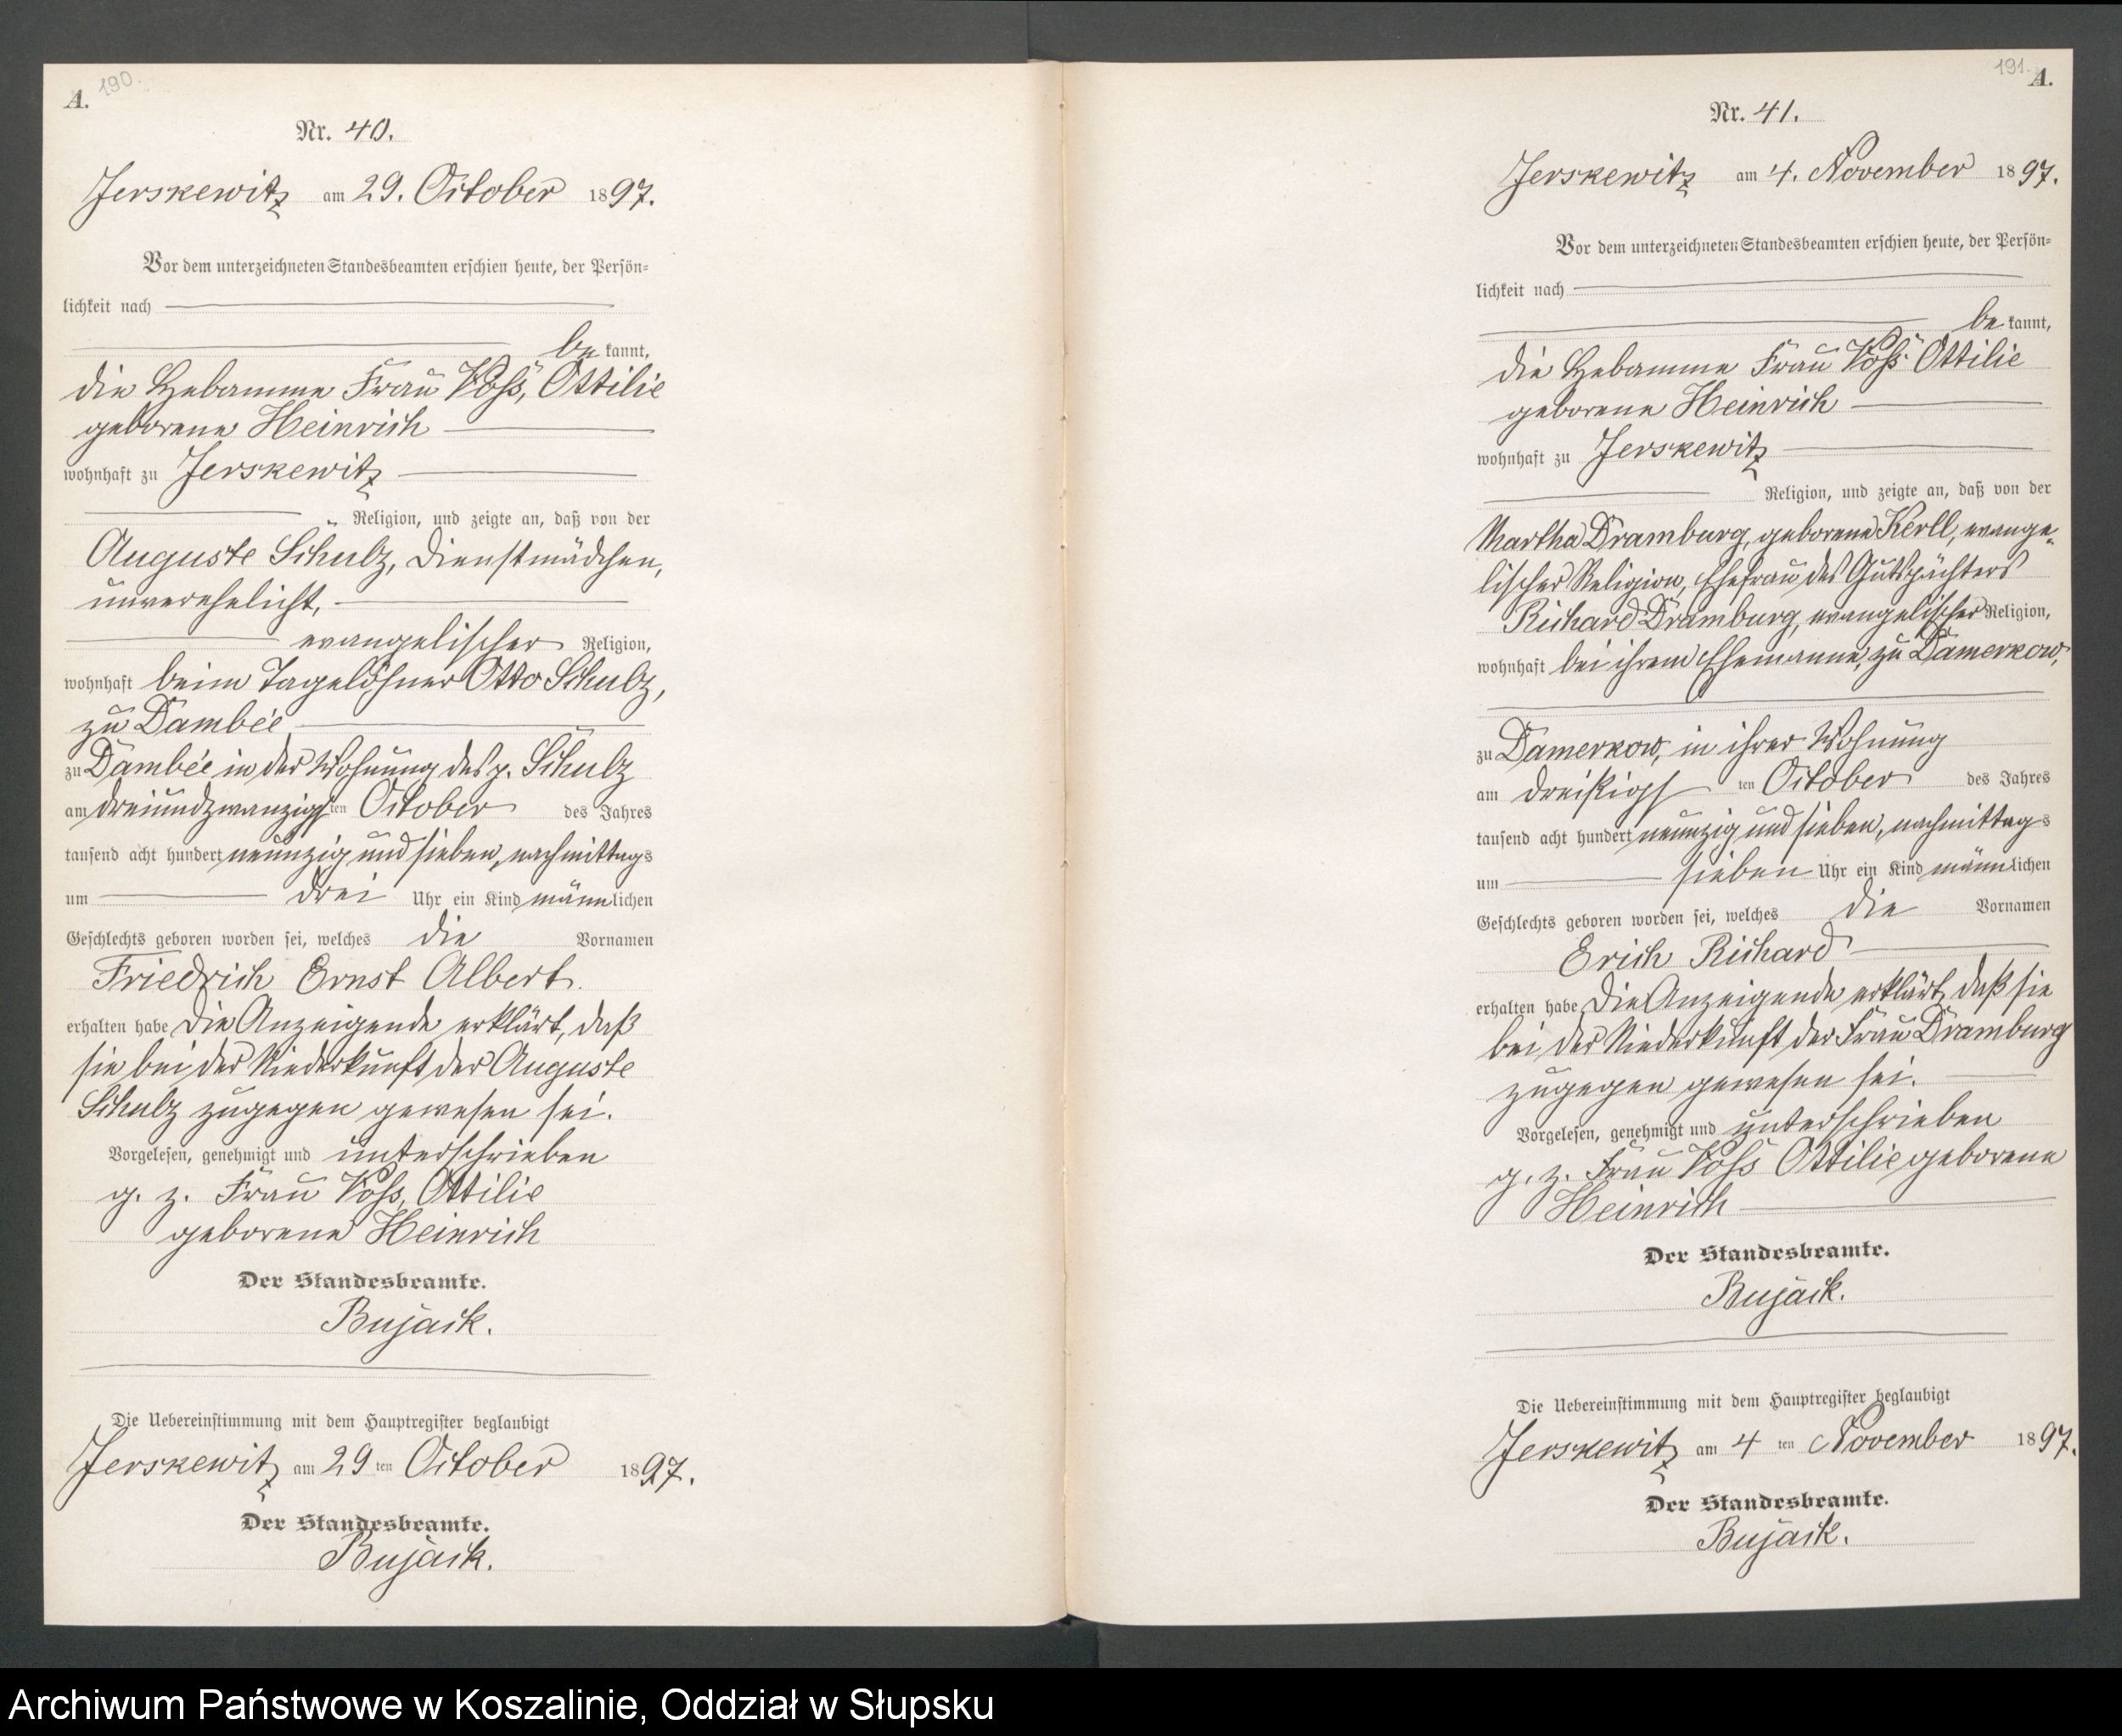 A. 190.
Nr. 40.
Jerskewitz am 29. October 1897.
Vor dem unterzeichneten Standesbeamten erschien heute, der Persön-
lichkeit nach
bekannt,
die Hebamme Frau Voß, Ottilie
geborene Heinrich
wohnhaft zu Jerskewitz
Religion, und zeigte an, daß von der
Auguste Schulz, Dienstmädchen,
unverehelicht,
evangelischer Religion,
wohnhaft beim Tagelöhner Otto Schulz,
zu Dambée
zu Dambée in der Wohnung des p. Schulz
am dreiundzwanzigsten October des Jahres
tausend acht hundert neunzig und sieben, nachmittags
um drei Uhr ein Kind männlichen
Geschlechts geboren worden sei, welches die Vornamen
Friedrich Ernst Albert.
erhalten habe Die Anzeigende erklärt, daß
sie bei der Niederkunft der Auguste
Schulz zugegen gewesen sei.
Vorgelesen, genehmigt und unterschrieben
g. z. Frau Voß, Ottilie
geborene Heinrich
Der Standesbeamte.
Bujack.
Die Uebereinstimmung mit dem Hauptregister beglaubigt
Jerskewitz am 29ten October 1897.
Der Standesbeamte.
Bujack.
191. A.
Nr. 41.
Jerskewitz am 4. November 1897.
Vor dem unterzeichneten Standesbeamten erschien heute, der Persön-
lichkeit nach
bekannt,
die Hebamme Frau Voß Ottilie
geborene Heinrich
wohnhaft zu Jerskewitz
Religion, und zeigte an, daß von der
Martha Dramburg, geborene Kerll, evange-
lischer Religion, Ehefrau des Gutspächters
Richard Dramburg, evangelischer Religion,
wohnhaft bei ihrem Ehemanne, zu Damerkow,
zu Damerkow, in ihrer Wohnung
am dreißigsten October des Jahres
tausend acht hundert neunzig und sieben, nachmittags
um sieben Uhr ein Kind männlichen
Geschlechts geboren worden sei, welches die Vornamen
Erich Richard
erhalten habe Die Anzeigende erklärt, daß sie
bei der Niederkunft der Frau Dramburg
zugegen gewesen sei.
Vorgelesen, genehmigt und unterschrieben
g. z. Frau Voß Ottilie geborene
Heinrich
Der Standesbeamte.
Bujack.
Die Uebereinstimmung mit dem Hauptregister beglaubigt
Jerskewitz am 4ten November 1897.
Der Standesbeamte.
Bujack.
Archiwum Państwowe w Koszalinie, Oddział w Słupsku